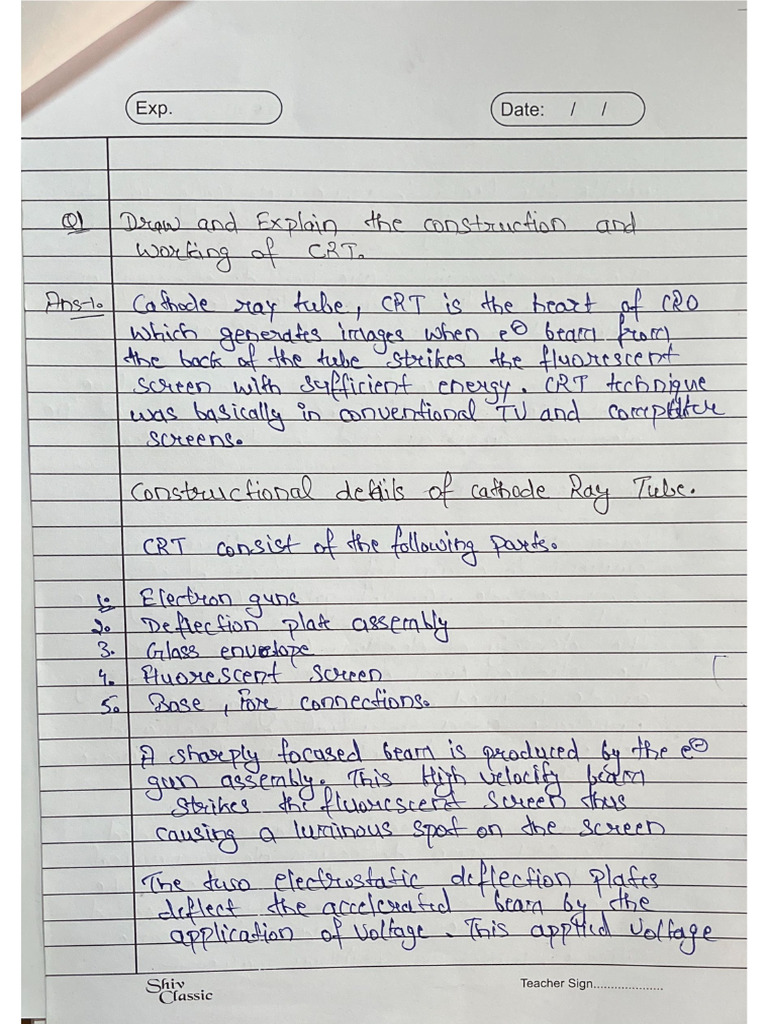 Exp.
Date: / /
Q1 Draw and Explain the construction and
working of CRT.
Ans-1. Cathode ray tube, CRT is the heart of CRO
which generates images when e⊖ beam from
the back of the tube strikes the fluorescent
screen with sufficient energy. CRT technique
was basically in conventional TV and computer
screens.
Constructional details of cathode Ray Tube.
CRT consist of the following parts.
1. Electron guns
2. Deflection plate assembly
3. Glass envelope
4. Fluorescent screen
5. Base, for connections.
A sharply focased beam is produced by the e⊖
gun assembly. This High velocity beam
strikes the fluorescent screen thus
causing a luminous spot on the screen
The two electrostatic deflection plates
deflect the accelerated beam by the
application of voltage. This applied voltage
Shiv
Classic
Teacher Sign....................